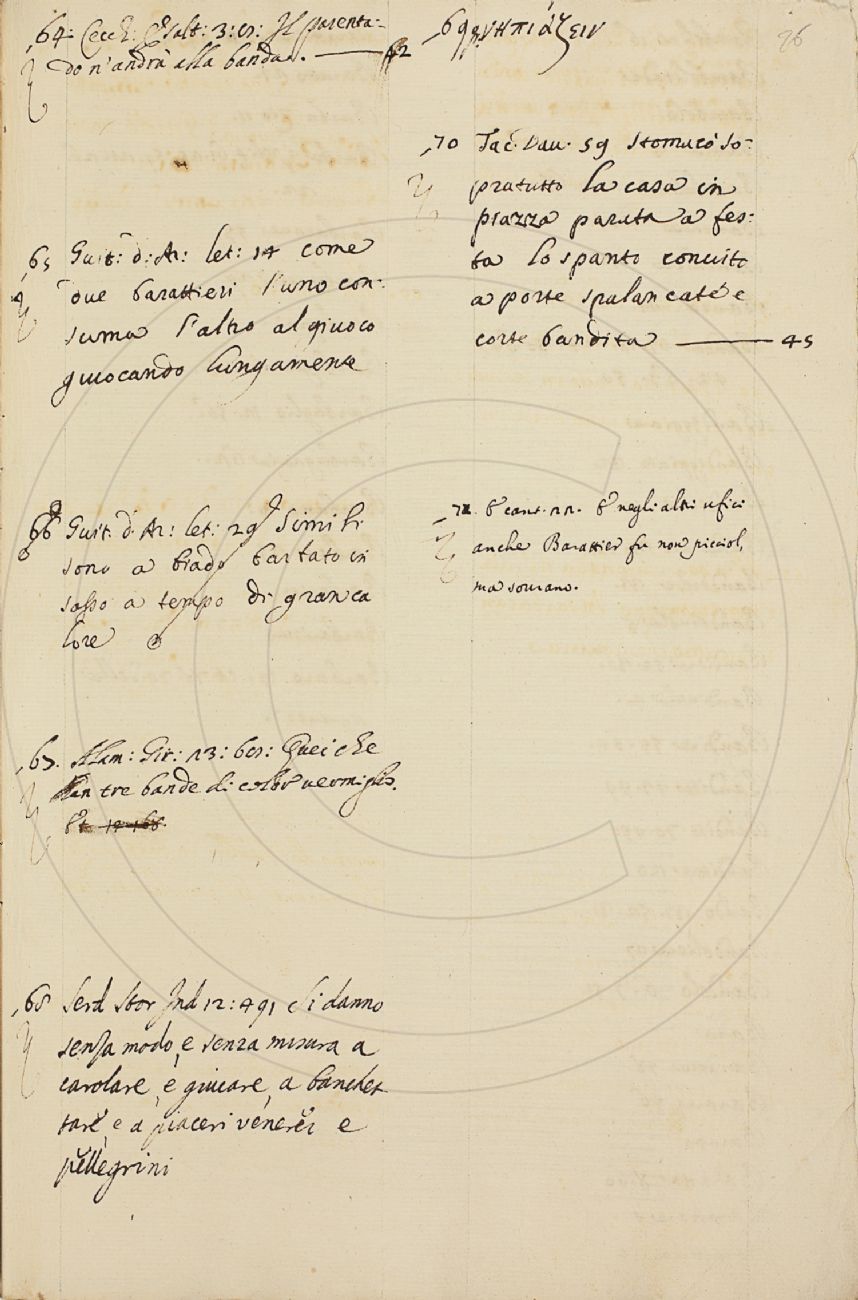 ,64. Cecch: Esalt: 3: cr: Il parenta-
do n'andrà alla banda. — 42
,65 Guit: d: Ar: let: 14 come
due barattieri l'uno con-
suma l'altro al giuoco
giuocando lungamente
66 Guit. d. Ar: let: 29 Simili
sono a biado barbato in
sasso a tempo di gran ca
lore
,67. Alam: Gir: 13: 601: Quei che
han tre bande di color vermiglio.
,68 Serd Stor Ind 12: 491 Si danno
senza modo, e senza misura a
carolare, e giucare, a banchet
tare, e a piaceri venerei e
pellegrini
,69 νηπιάζειν
,70 Tac. Dav. 59 stomacò so-
pratutto la casa in
piazza parata a fes:
ta lo spanto convito
a porte spalancate e
corte bandita — 45
,71. E cant. 22. E negli altri ufici
anche Barattier fu non picciol,
ma sovrano.
26